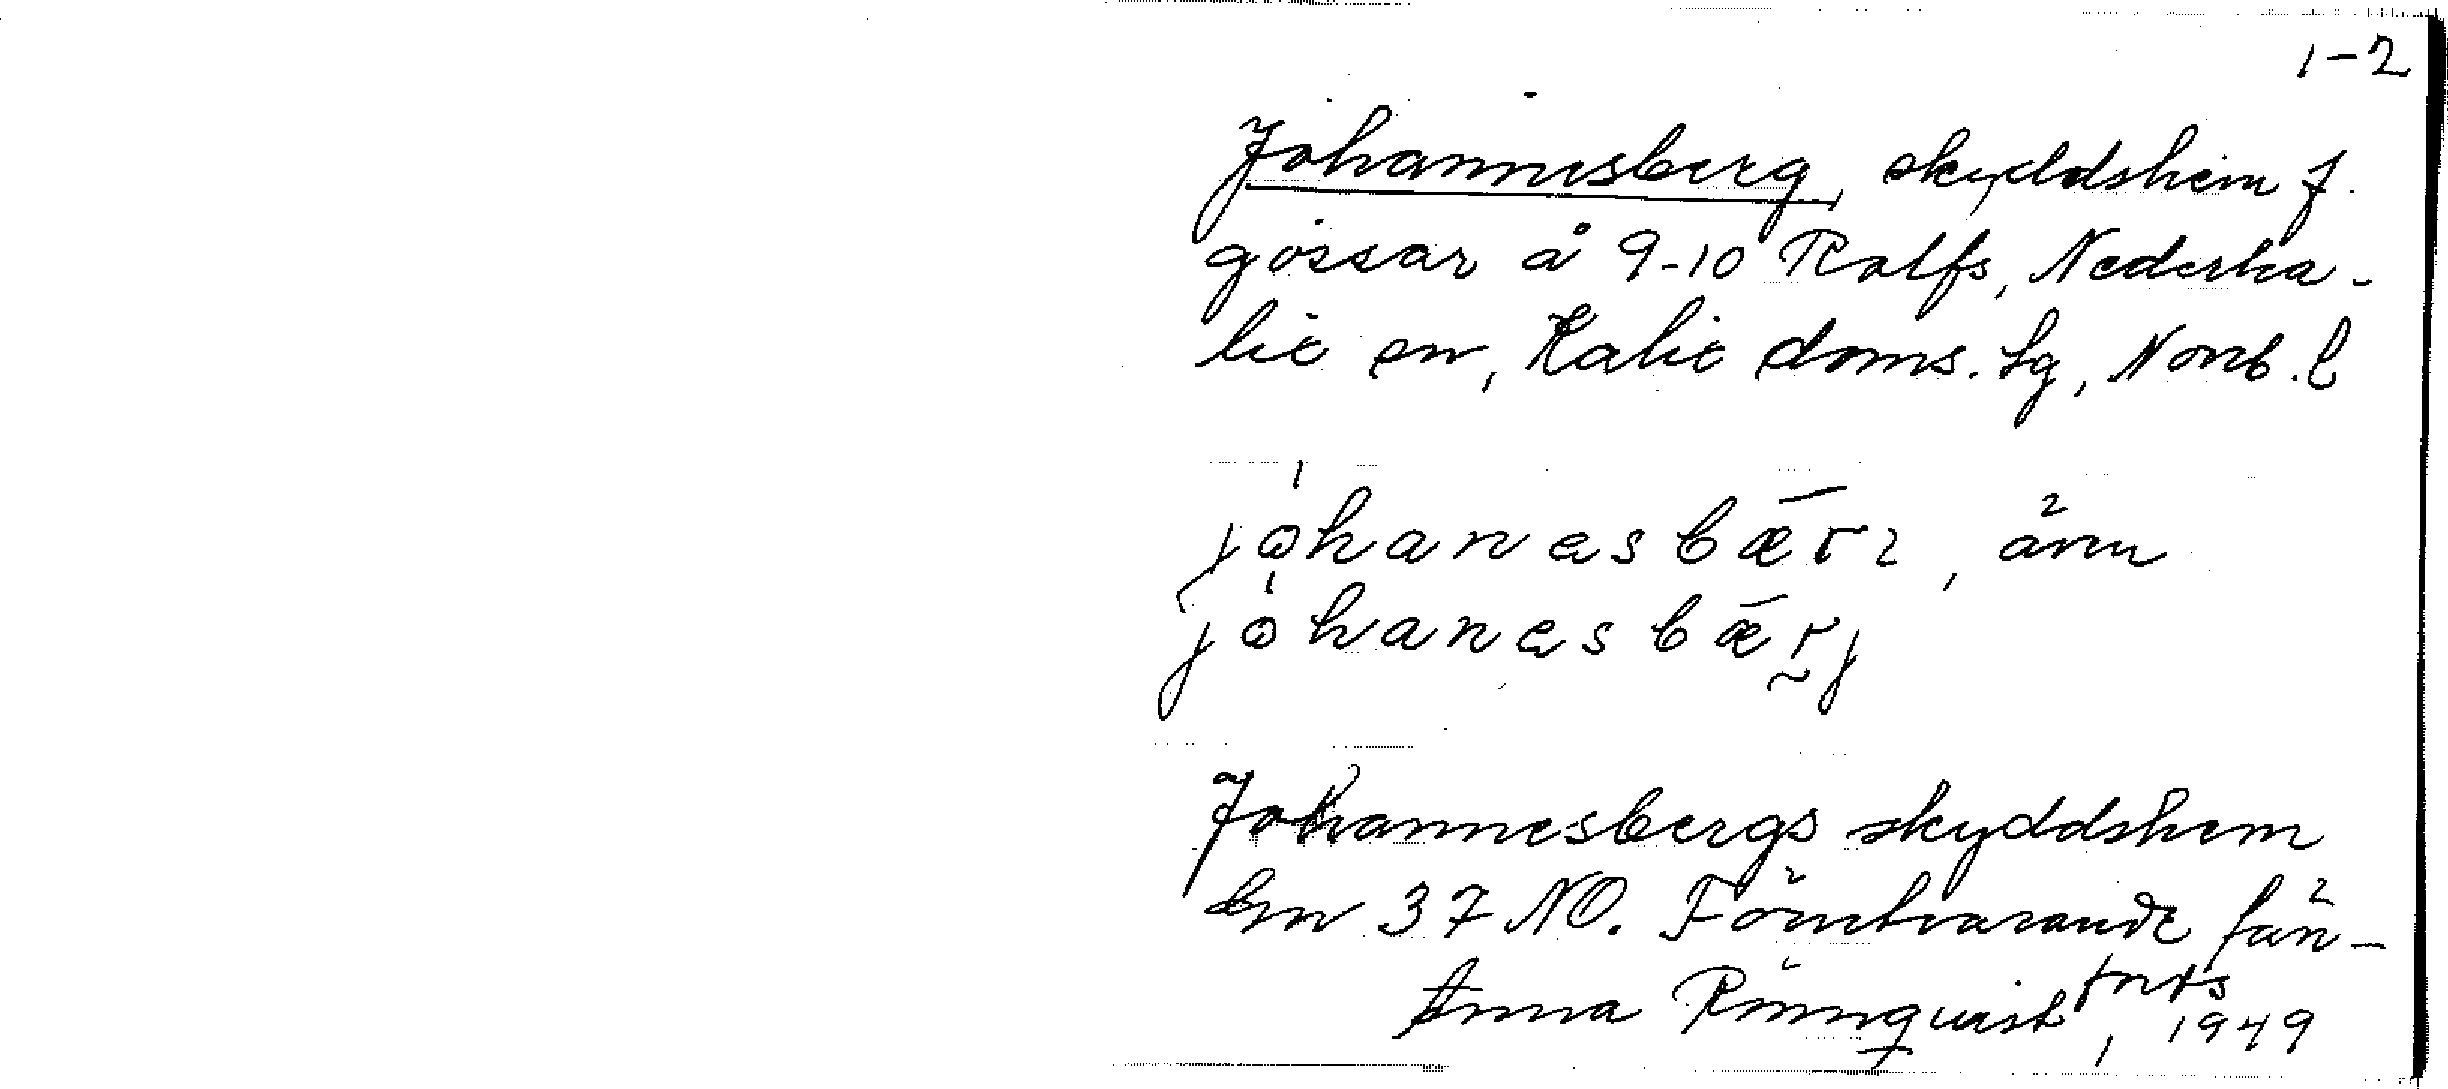 1-2
Johannesberg, skyddshem f.
gossar å 9-10 Rolfs, Nederka-
lix sn, Kalix doms. tg, Norrb. l
johanesbǣrj, även
johanesbǣrj
Johannesbergs skyddshem
Gen 37 NO. Förutvarande fän-
forts
Anna Rönnqvist, 1949